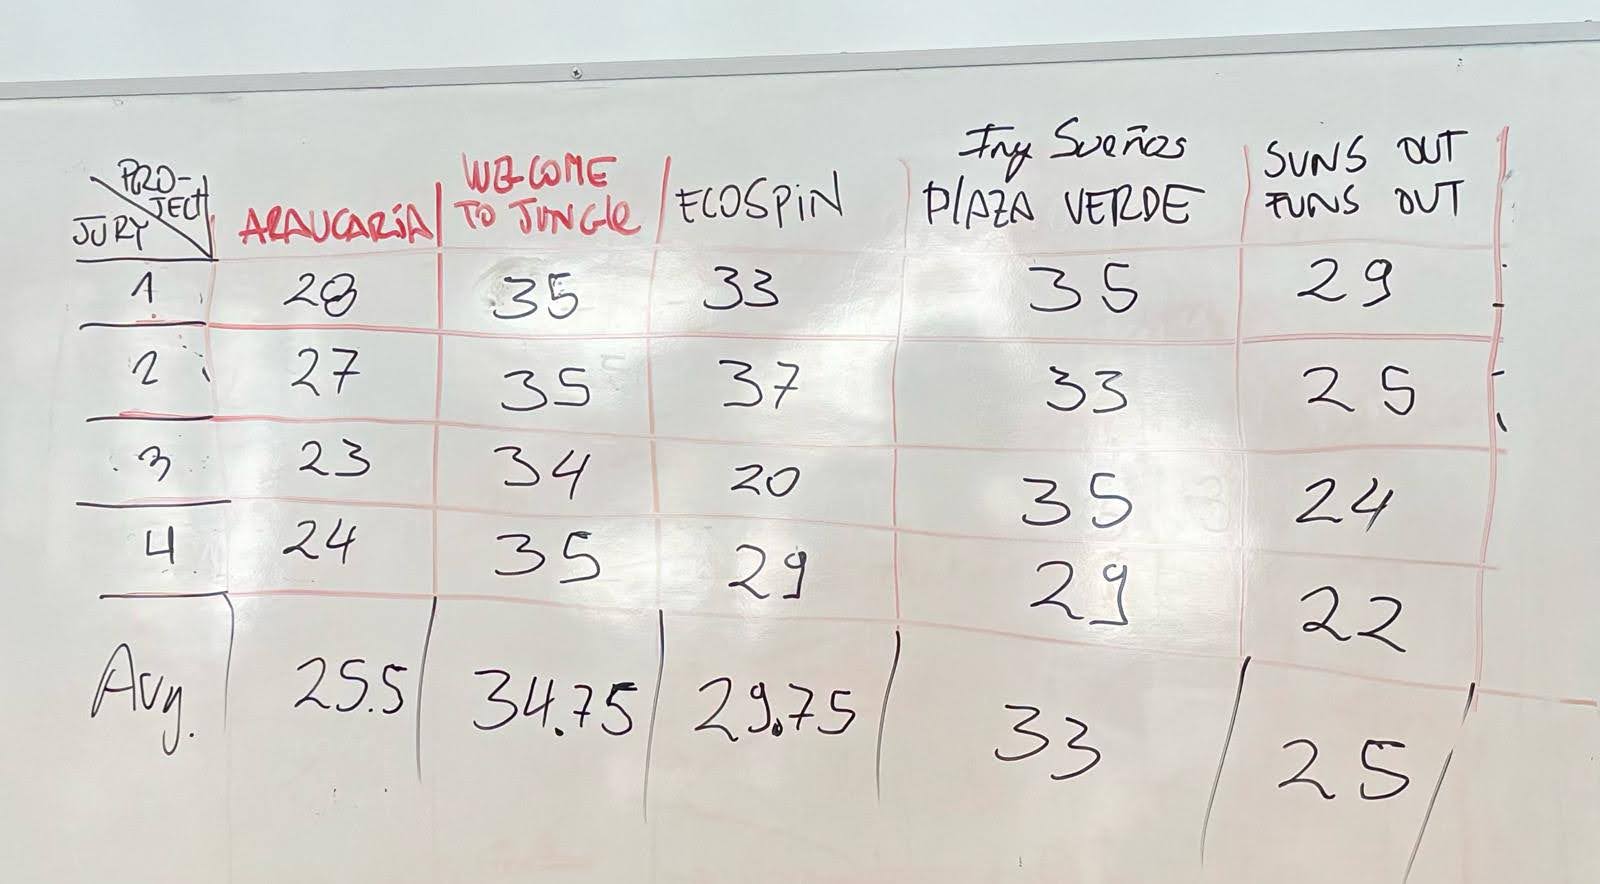 PRO-
JECT
JURY
ARAUCARIA
WELCOME
TO JUNGLE
ECOSPIN
Sueños
PLAZA VERDE
SUNS OUT
FUNS OUT
1 28 35 33 35 29
2 27 35 37 33 25
3 23 34 20 35 24
4 24 35 29 29 22
Avg. 25.5 34.75 29.75 33 25